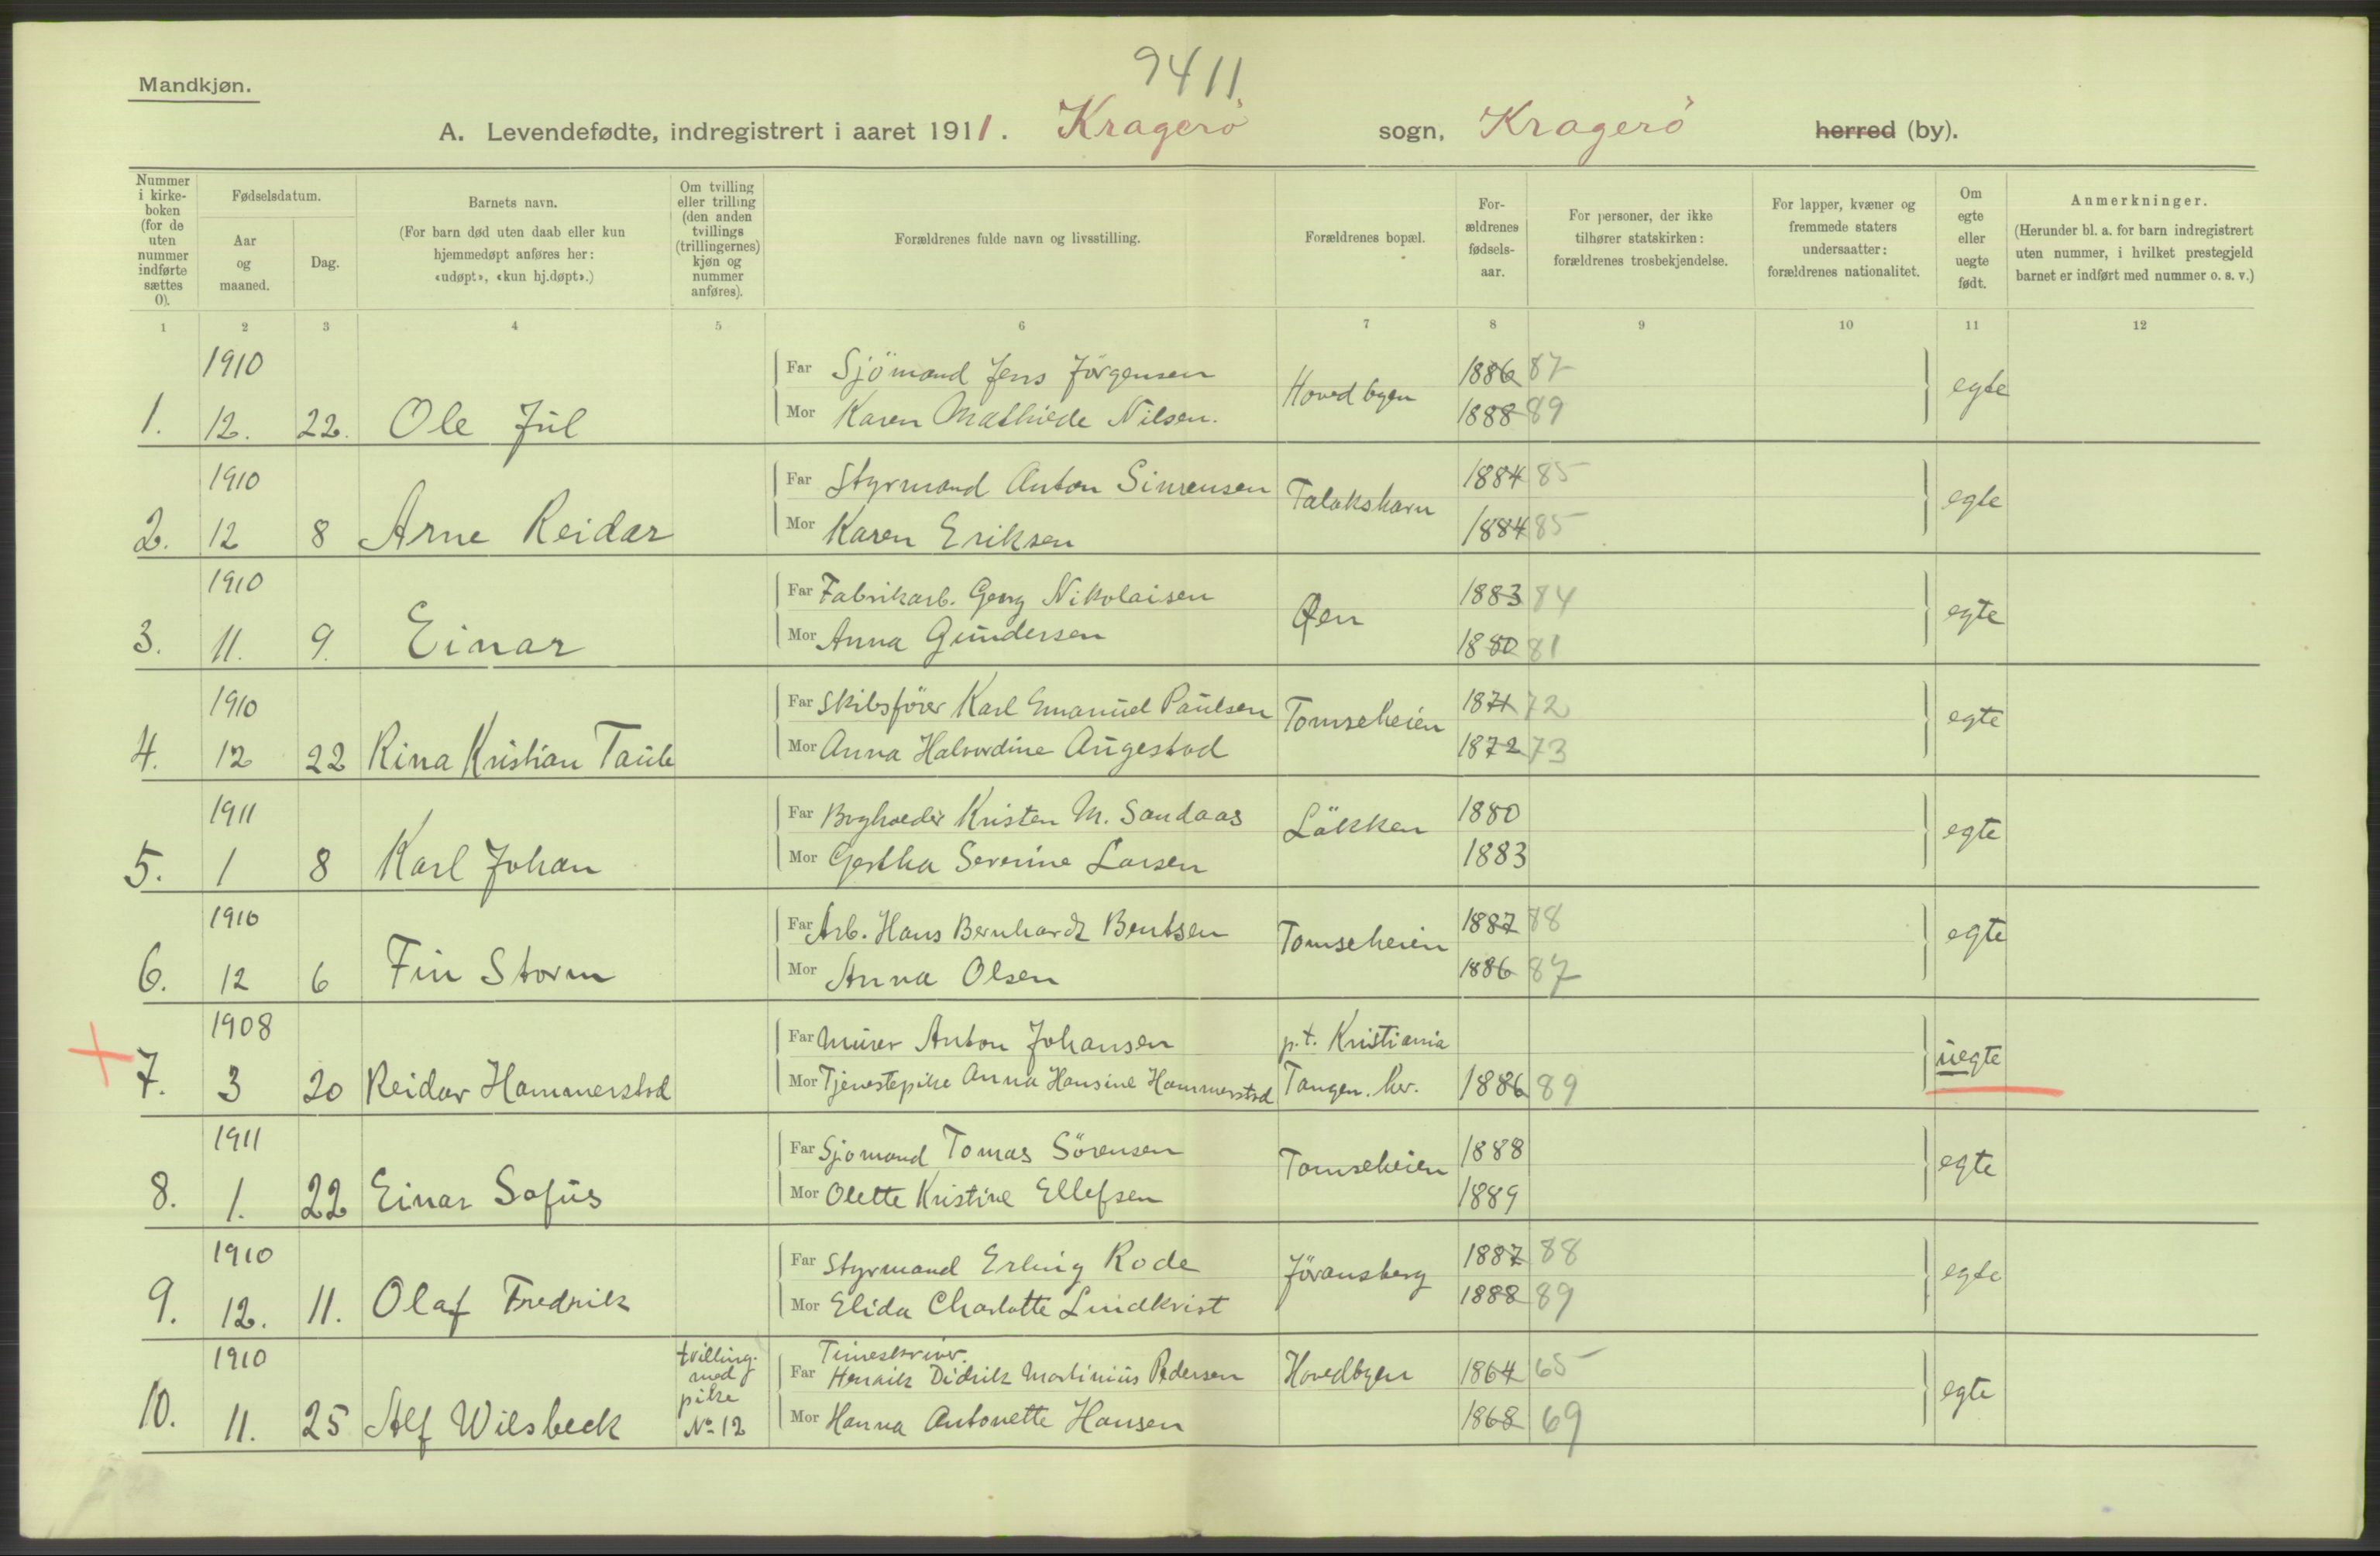 9411
Mandkjøn.
A. Levendefødte, indregistrert i aaret 1911. Kragerö sogn, Kragerö herred (by).
Nummer i kirkeboken (for de uten nummer indførte sættes 0).
Fødselsdatum.
Aar og maaned.
Dag.
Barnets navn.
(For barn død uten daab eller kun hjemmedøpt anføres her: «udøpt», «kun hj.døpt».)
Om tvilling eller trilling (den anden tvillings (trillingernes) kjøn og nummer anføres).
Forældrenes fulde navn og livsstilling.
Forældrenes bopæl.
Forældrenes fødselsaar.
For personer, der ikke tilhører statskirken: forældrenes trosbekjendelse.
For lapper, kvæner og fremmede staters undersaatter: forældrenes nationalitet.
Om egte eller uegte født.
Anmerkninger.
(Herunder bl. a. for barn indregistrert uten nummer, i hvilket prestegjeld barnet er indført med nummer o. s. v.)
1 2 3 4 5 6 7 8 9 10 11 12
1910 Far Sjömand Jens Jörgensen Hovedbyen 1886 87 egte
1. 12. 22. Ole Jul Mor Karen Mathilde Nilsen. 1888 89
1910 Far Styrmand Anton Simensen Talakshavn 1884 85 egte
2. 12 8 Arne Reidar Mor Karen Eriksen 1884 85
1910 Far Fabrikarb. Georg Nikolaisen Øen 1883 84 egte
3. 11. 9. Einar Mor Anna Gundersen 1880 81
1910 Far Skibsförer Karl Emanuel Paulsen Tomseheien 1871 72 egte
4. 12 22 Rina Kristian Taule Mor Anna Halvordine Augestad 1872 73
1911 Far Bogholder Kristen M. Sandaas Lökken 1880 egte
5. 1 8 Karl Johan Mor Gertha Severine Larsen 1883
1910 Far Arb. Hans Bernhardt Bentsen Tomseheien 1887 88 egte
6. 12 6 Fin Storm Mor Anna Olsen 1886 87
1908 Far Murer Anton Johansen p.t. Kristiania uegte
7. 3 20 Reidar Hammerstad Mor Tjenestepike Anna Hansine Hammerstad Tangen. her. 1886 89
1911 Far Sjomand Tomas Sörensen Tomseheien 1888 egte
8. 1. 22 Einar Sofus Mor Olette Kristine Ellefsen 1889
1910 Far Styrmand Erling Rode Jöransberg 1887 88 egte
9. 12. 11. Olaf Fredrik Mor Elida Charlotte Lindkvist 1888 89
1910 tvilling. med pike No 12 Timeskriver. Far Henrik Didrik Martinius Pedersen Hovedbyen 1864 65 egte
10. 11. 25 Alf Wilsbeck Mor Hanna Antonette Hansen 1868 69